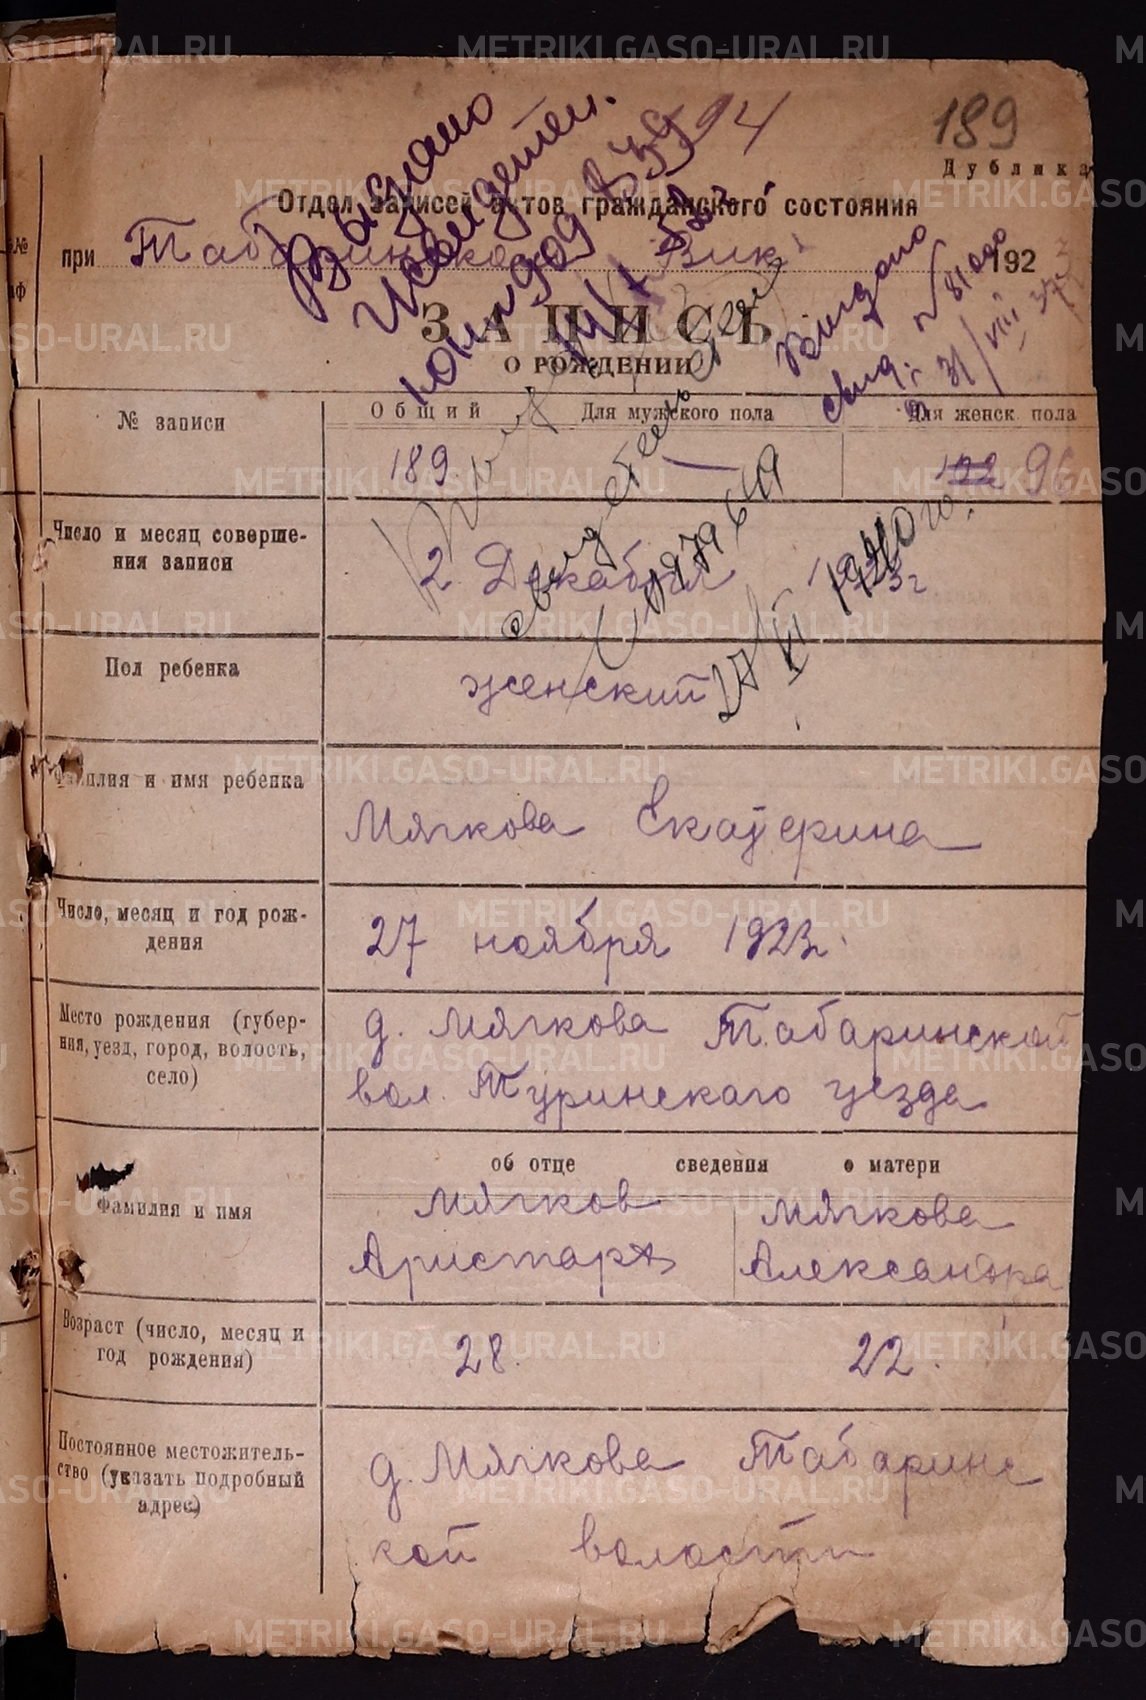 189
Дублика
Отдел записей актов гражданского состояния
при Табаринском Вик 192
ЗАПИСЬ
О РОЖДЕНИИ
Выдано
Выдано
свид.
31/VIII
№ записи
Общий
Для мужского пола
Для женск. пола
189
—
122 96
Число и месяц соверше-
ния записи
2 Декабря 1923 г
27/VI 1940 г.
Пол ребенка
женский
Фамилия и имя ребенка
Мягкова Екатерина
Число, месяц и год рож-
дения
27 ноября 1923 г.
Место рождения (губер-
ния, уезд, город, волость,
село)
д. Мягкова Табаринской
вол. Туринскаго уезда
об отце сведения о матери
Фамилия и имя
Мягков
Аристарх
Мягкова
Александра
Возраст (число, месяц и
год рождения)
28.
22.
Постоянное местожитель-
ство (указать подробный
адрес)
д. Мягкова Табаринс
кой волости
METRIKI.GASO-URAL.RU